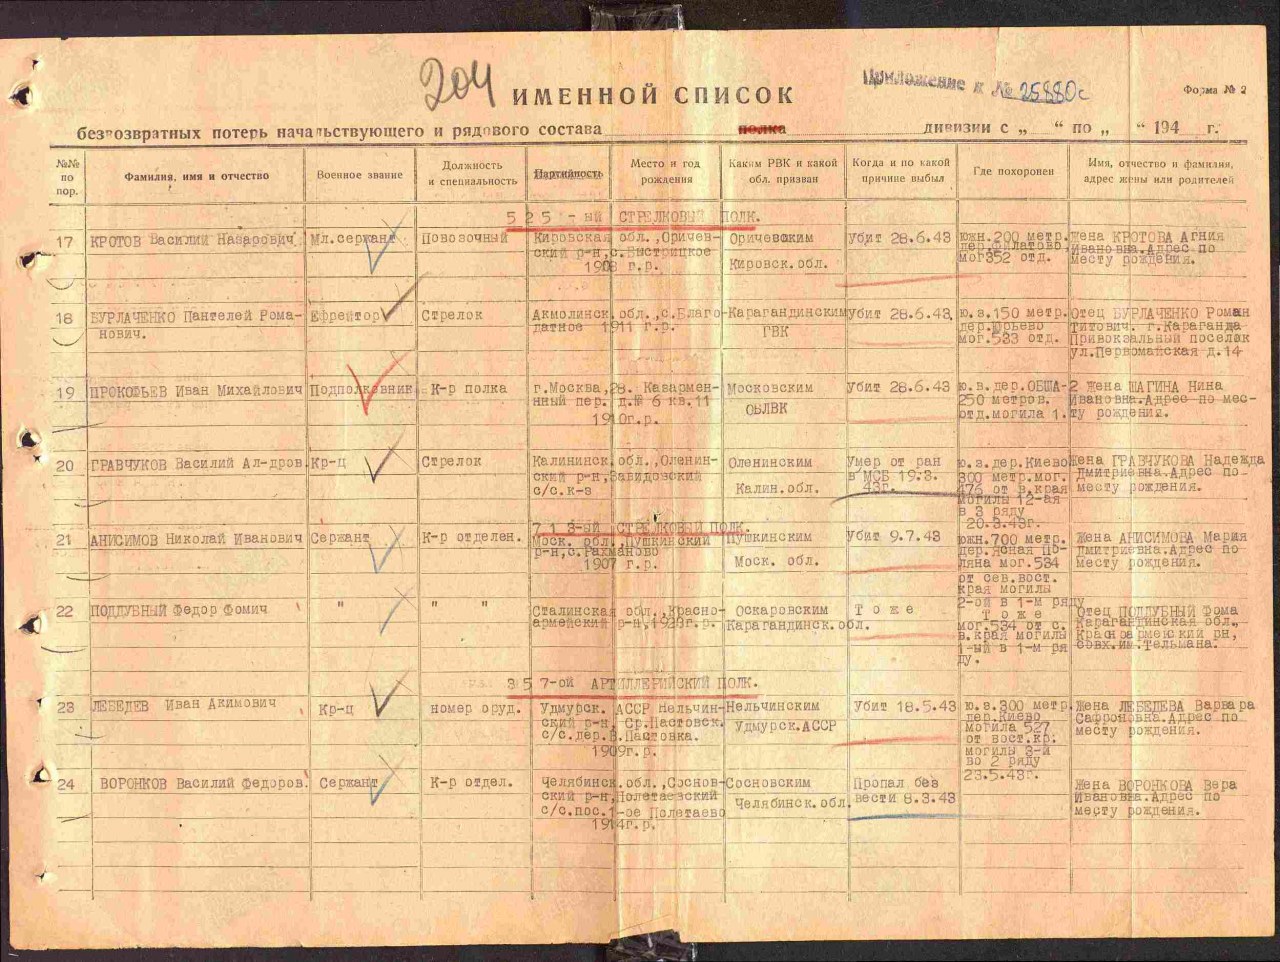 204
ИМЕННОЙ СПИСОК
Приложение к № 25880с
Форма № 2
безвозвратных потерь начальствующего и рядового состава полка дивизии с „ “ по „ “ 194 г.
№№ по пор.
Фамилия, имя и отчество
Военное звание
Должность и специальность
Партийность
Место и год рождения
Каким РВК и какой обл. призван
Когда и по какой причине выбыл
Где похоронен
Имя, отчество и фамилия, адрес жены или родителей
525-ый СТРЕЛКОВЫЙ ПОЛК.
17 КРОТОВ Василий Назарович Мл.сержант Повозочный Кировская обл.,Оричев- Оричевским Убит 28.6.43 южн.200 метр. Жена КРОТОВА Агния
ский р-н,с.Быстрицкое дер.Филатово Ивановна.Адрес по
1908 г.р. Кировск.обл. мог352 отд. месту рождения.
18 БУРЛАЧЕНКО Пантелей Рома- Ефрейтор Стрелок Акмолинск.обл.,с.Благо- Карагандинским убит 28.6.43 ю.з.150 метр. Отец БУРЛАЧЕНКО Роман
нович. датное 1911 г.р. ГВК дер.Юрьево Титович. г.Караганда
мог.533 отд. Привокзальный поселок
ул.Первомайская д.14
19 ПРОКОФЬЕВ Иван Михайлович Подполковник К-р полка г.Москва,28. Казармен- Московским Убит 28.6.43 ю.в.дер.ОБША-2 Жена ШАГИНА Нина
ный пер. д.№ 6 кв.11 ОБЛВК 250 метров. Ивановна.Адрес по мес-
1910г.р. отд.могила 1. ту рождения.
20 ГРАВЧУКОВ Василий Ал-дров. Кр-ц Стрелок Калининск.обл.,Оленин- Оленинским Умер от ран ю.з.дер.Киево Жена ГРАВЧУКОВА Надежда
ский р-н,Завидовский в МСБ 19.3. 300 метр.мог. Дмитриевна.Адрес по
с/с.к-з Калин.обл. 43г. 476 от в.края месту рождения.
могилы 12-ая
в 3 ряду
20.3.43г.
713-ый СТРЕЛКОВЫЙ ПОЛК.
21 АНИСИМОВ Николай Иванович Сержант К-р отделен. Моск. обл.,Пушкинский Пушкинским Убит 9.7.43 южн.700 метр. Жена АНИСИМОВА Мария
р-н,с.Рахманово дер.Ясная По- Дмитриевна.Адрес по
1907 г.р. Моск. обл. ляна мог.534 месту рождения.
от сев.вост.
края могилы
2-ой в 1-м ряду
22 ПОДДУБНЫЙ Федор Фомич " " " Сталинская обл.,Красно- Оскаровским Т о ж е Т о ж е Отец ПОДДУБНЫЙ Фома
армейский р-н,1923г.р. Карагандинск.обл. мог.534 от с. Карагандинская обл.,
в.края могилы Красноармейский рн,
1-ый в 1-м ря Совх.им.Тельмана.
ду.
357-ой АРТИЛЛЕРИЙСКИЙ ПОЛК.
23 ЛЕБЕДЕВ Иван Акимович Кр-ц номер оруд. Удмурск. АССР Нельчин- Нельчинским Убит 18.5.43 ю.з.300 метр. Жена ЛЕБЕДЕВА Варвара
ский р-н, Ср.Пастовск. дер.Киево Сафроновна.Адрес по
с/с.дер.В.Пастовка. Удмурск.АССР могила 527 месту рождения.
1909г.р. от вост.кр.
могилы 3-й
во 2 ряду
23.5.43г.
24 ВОРОНКОВ Василий Федоров. Сержант К-р отдел. Челябинск.обл.,Соснов- Сосновским Пропал без Жена ВОРОНКОВА Вера
ский р-н,Полетаевский вести 8.3.43 Ивановна.Адрес по
с/с.пос.1-ое Полетаево Челябинск.обл. месту рождения.
1914г.р.